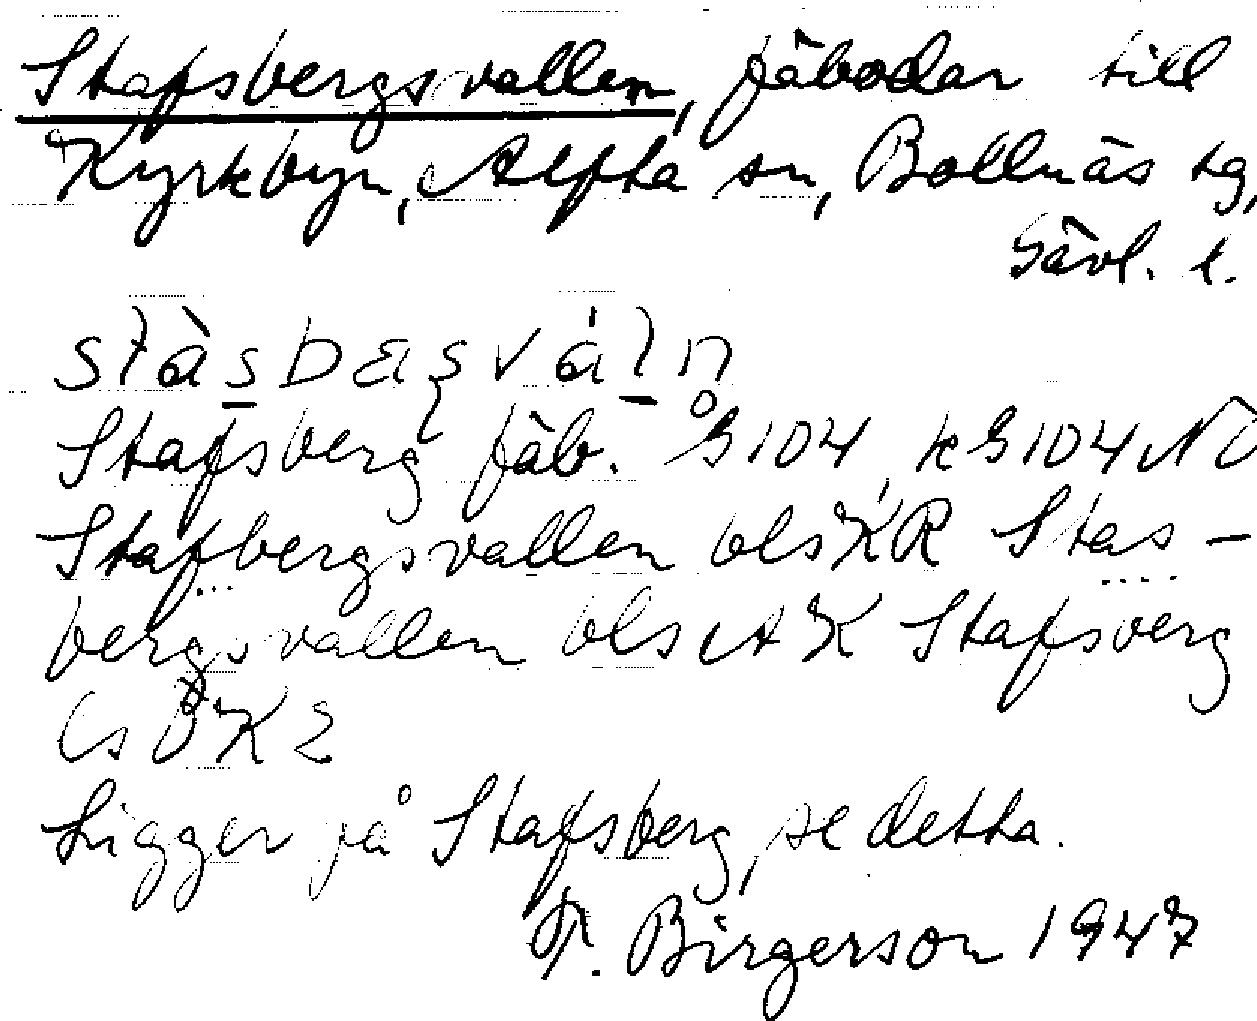 Stafsbergsvallen, fäbodar till
Kyrkbyn, Alfta sn, Bollnäs tg,
Gävl. l.
Stafsberg fäb. G104, kG104NÖ
Stafbergsvallen bls KR Stas-
bergsvallen bls AK Stafsberg
Ligger på Stafsberg, se detta.
Birgerson 1947